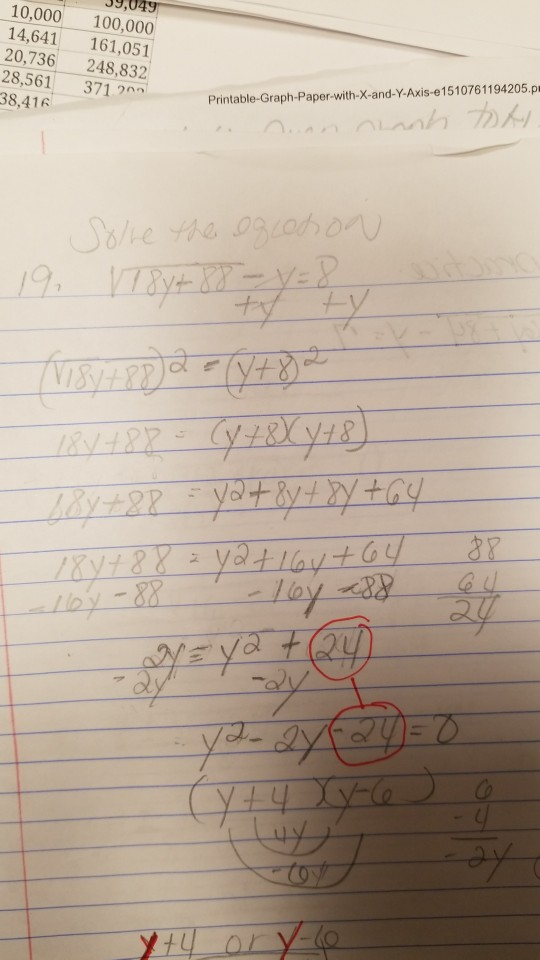 59,049
10,000 100,000
14,641 161,051
20,736 248,832
28,561
38,416
Printable-Graph-Paper-with-X-and-Y-Axis-e1510761194205.p
Solve the equation
19. √18y+88 - y = 8
+y +y
(√18y+88)2 = (y+8)2
18y+88 = (y+8)(y+8)
18y+88 = y2+8y+8y+64
18y+88 = y2+16y+64 88
-16y-88 -16y -88 64
24
2y = y2 + 24
-2y -2y
y2 - 2y - 24 = 0
(y+4)(y-6) 6
4y -4
-6y -2y
y+4 or y-6